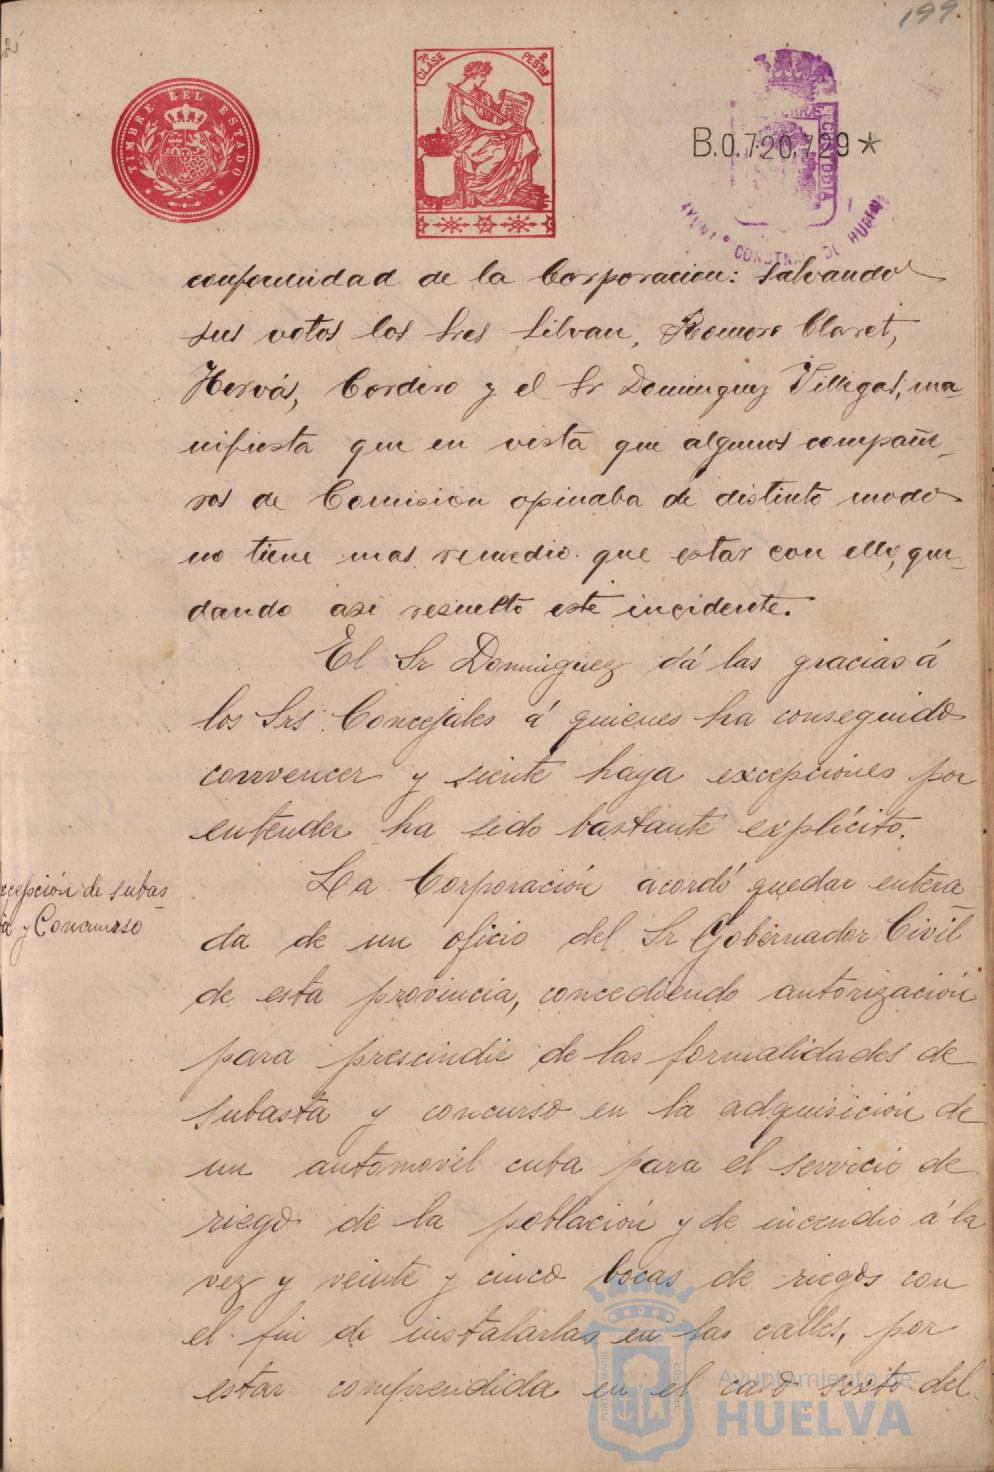 199.
TIMBRE DEL ESTADO
7ª CLASE 2 PESTAS
B.0.720,729 *
CUSTODIA
AYUNT CONSTNAL DE HUELVA
conformidad de la Corporacion: salvando
sus votos los Sres Silvan, Romero Claret,
Hervás, Cordero y el Sr Dominguez Villegas, ma-
nifiesta que en vista que algunos compañe-
ros de Comision opinaba de distinto modo
no tiene mas remedio que estar con ello, que-
dando asi resuelto este incidente.
El Sr Dominguez dá las gracias á
los Srs. Concejales á quienes ha conseguido
convencer y siente haya excepciones por
entender ha sido bastante explícito.
xcepción de subas
ta y Concurso
La Corporación acordó quedar entera
da de un oficio del Sr Gobernador Civil
de esta provincia, concediendo autorización
para prescindir de las formalidades de
subasta y concurso en la adquisición de
un automovil cuba para el servicio de
riego de la población y de incendio á la
vez y veinte y cinco bocas de riegos con
el fin de instalarlas en las calles, por
estar comprendida en el caso sexto del
Ayuntamiento de
HUELVA